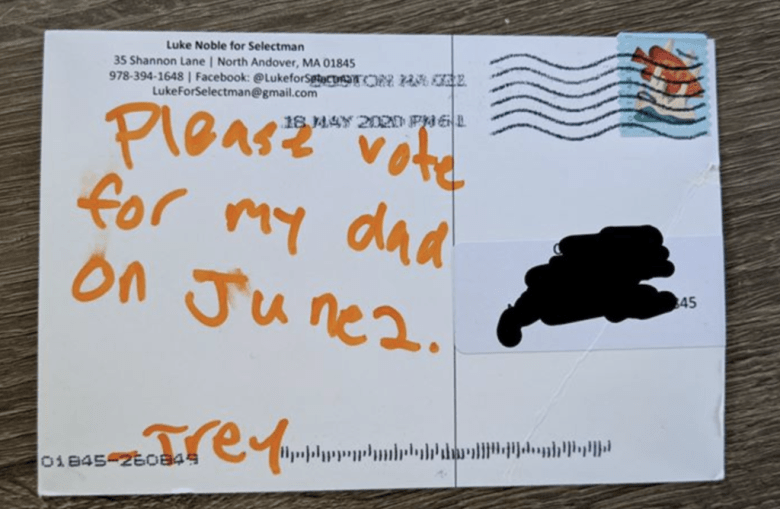 Luke Noble for Selectman
35 Shannon Lane | North Andover, MA 01845
978-394-1648 | Facebook: @LukeforSelectman
LukeForSelectman@gmail.com
BOSTON MA 021
18 MAY 2020 PM 6 L
Please vote
for my dad
on June 2.
-Trey
45
01845-260849